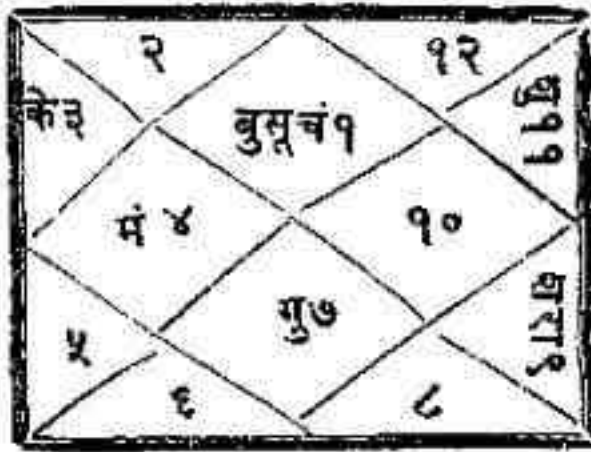 २ १२
के३ बुसूचं१ शु११
मं ४ १०
गु७
५ शरा९
६ ८